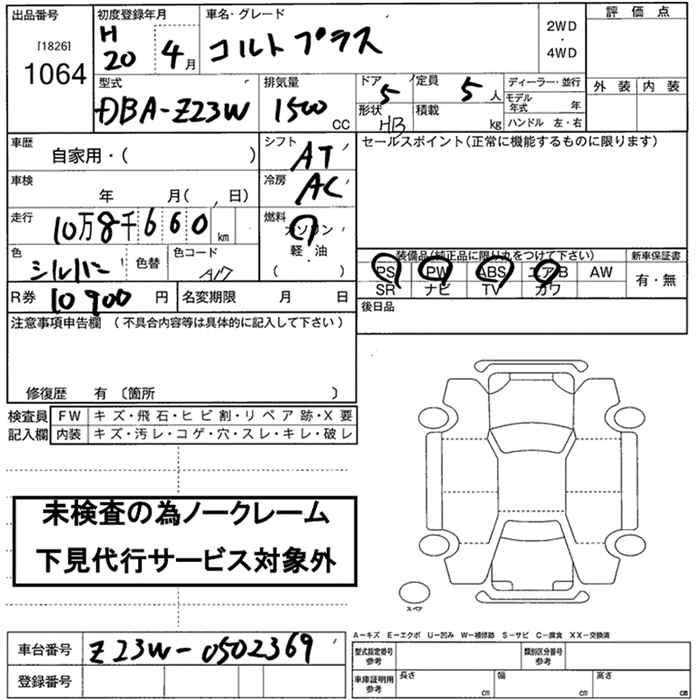 出品番号 初度登録年月 車名・グレード 評価点
[1826] H 2WD
1064 20 4月 コルトプラス ・
4WD
型式 排気量 ドア 定員 ディーラー・並行 外装 内装
DBA-Z23W 1500 CC 5 5人 モデル年式 年
形状 HB 積載 kg ハンドル 左・右
車歴 シフト セールスポイント(正常に機能するものに限ります)
自家用・( ) AT
車検 冷房
年 月( 、日) AC
走行 燃料
10万8千660km ガソリン
軽・油
色 色替 色コード ( )
シルバー A17
装備品(純正品に限り丸をつけて下さい) 新車保証書
PS PW ABS エアB AW 有・無
SR ナビ TV カワ
R券 10900円 名変期限 月 日 後日品
注意事項申告欄 (不具合内容等は具体的に記入して下さい)
修復歴 有 〔箇所 〕
検査員 FW キズ・飛石・ヒビ割・リペア跡・X要
記入欄 内装 キズ・汚レ・コゲ・穴・スレ・キレ・破レ
未検査の為ノークレーム
下見代行サービス対象外
スペア
A-キズ E-エクボ U-凹み W-補修跡 S-サビ C-腐食 XX-交換済
車台番号 Z23W-0502369
登録番号
型式指定番号 参考 類別区分番号 参考
車庫証明用 参考 長さ cm 幅 cm 高さ cm